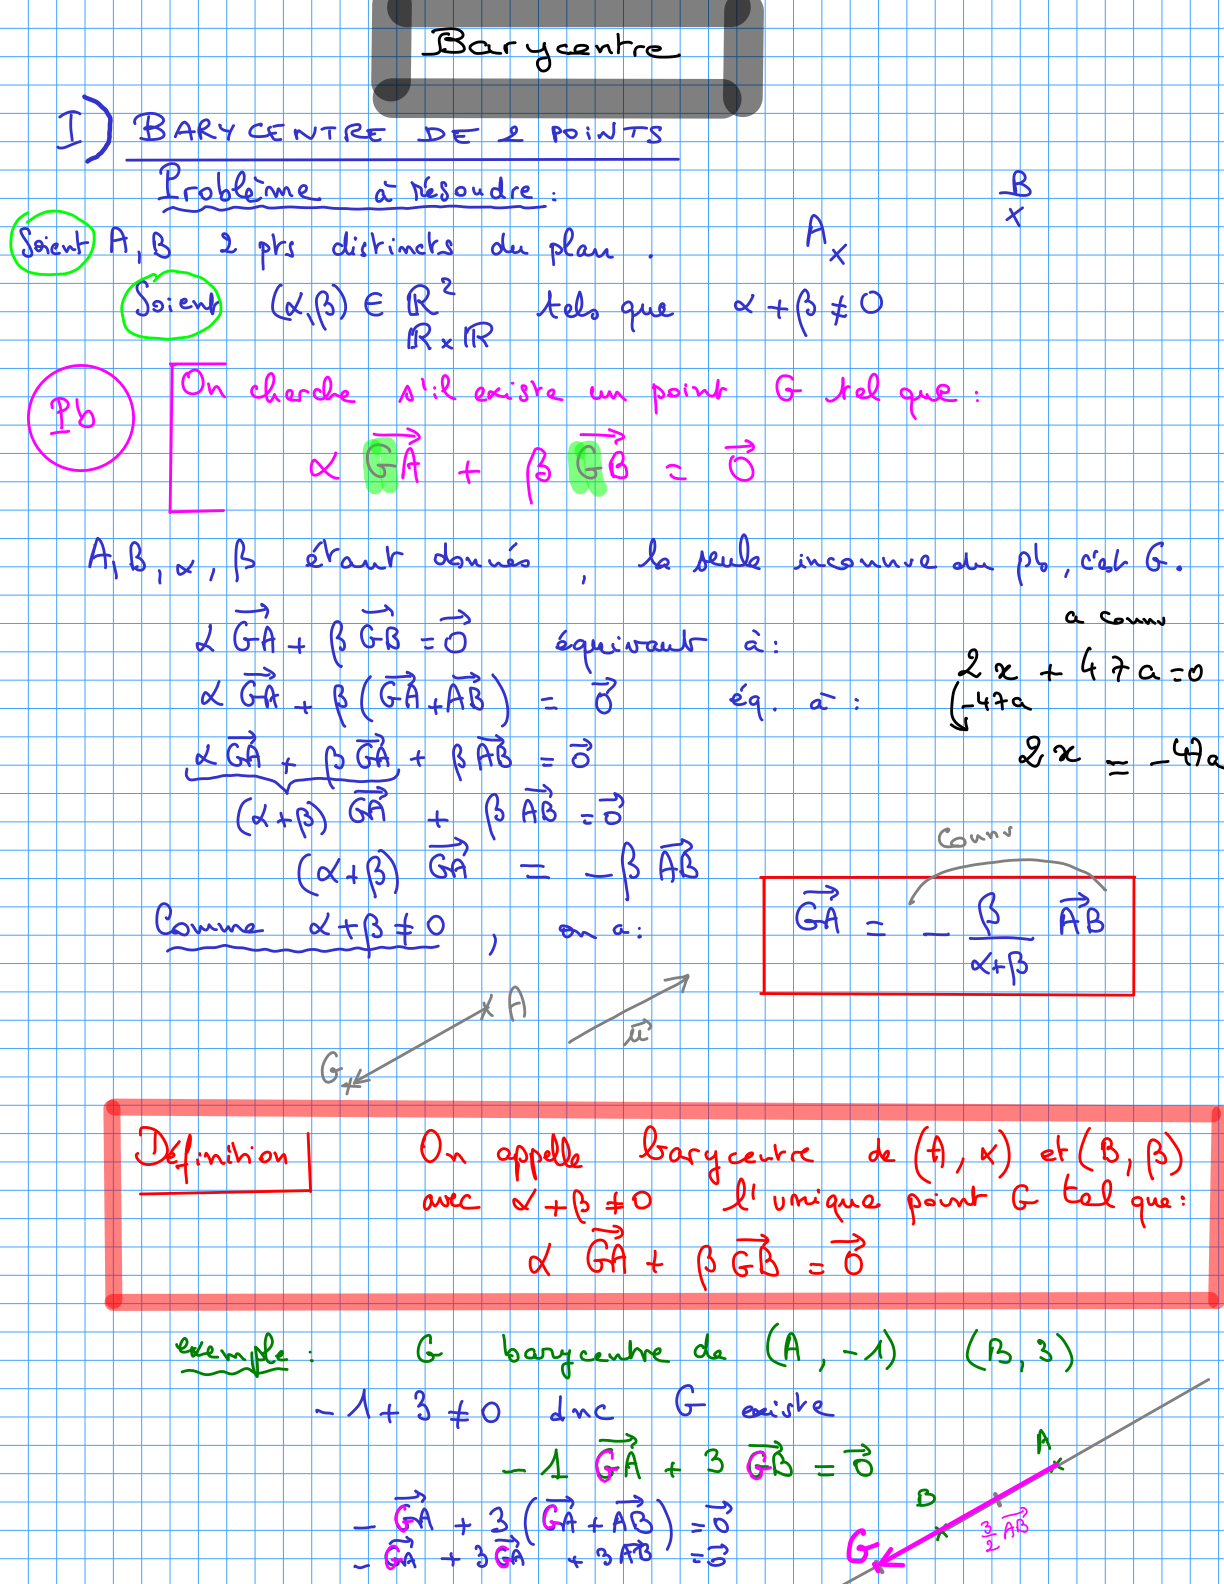 Barycentre
I) BARYCENTRE DE 2 POINTS
Problème à résoudre :
B
x
Soient A, B 2 pts distincts du plan .
A x
Soient (α,β) ∈ ℝ² tels que α + β ≠ 0
ℝ × ℝ
Pb
On cherche s'il existe un point G tel que :
α GA⃗ + β GB⃗ = 0⃗
A, B, α, β étant donnés, la seule inconnue du pb, c'est G.
a connu
α GA⃗ + β GB⃗ = 0⃗ équivaut à :
2x + 47a = 0
α GA⃗ + β (GA⃗ + AB⃗) = 0⃗ éq. à :
-47a
α GA⃗ + β GA⃗ + β AB⃗ = 0⃗
2x = -47a
(α+β) GA⃗ + β AB⃗ = 0⃗
(α+β) GA⃗ = - β AB⃗
connu
Comme α+β ≠ 0, on a :
GA⃗ = - β/(α+β) AB⃗
A
u⃗
G
Définition
On appelle barycentre de (A, α) et (B, β)
avec α + β ≠ 0 l'unique point G tel que :
α GA⃗ + β GB⃗ = 0⃗
exemple : G barycentre de (A, -1) (B, 3)
-1 + 3 ≠ 0 dnc G existe
-1 GA⃗ + 3 GB⃗ = 0⃗
A
B
- GA⃗ + 3 (GA⃗ + AB⃗) = 0⃗
3/2 AB⃗
- GA⃗ + 3 GA⃗ + 3 AB⃗ = 0⃗
G